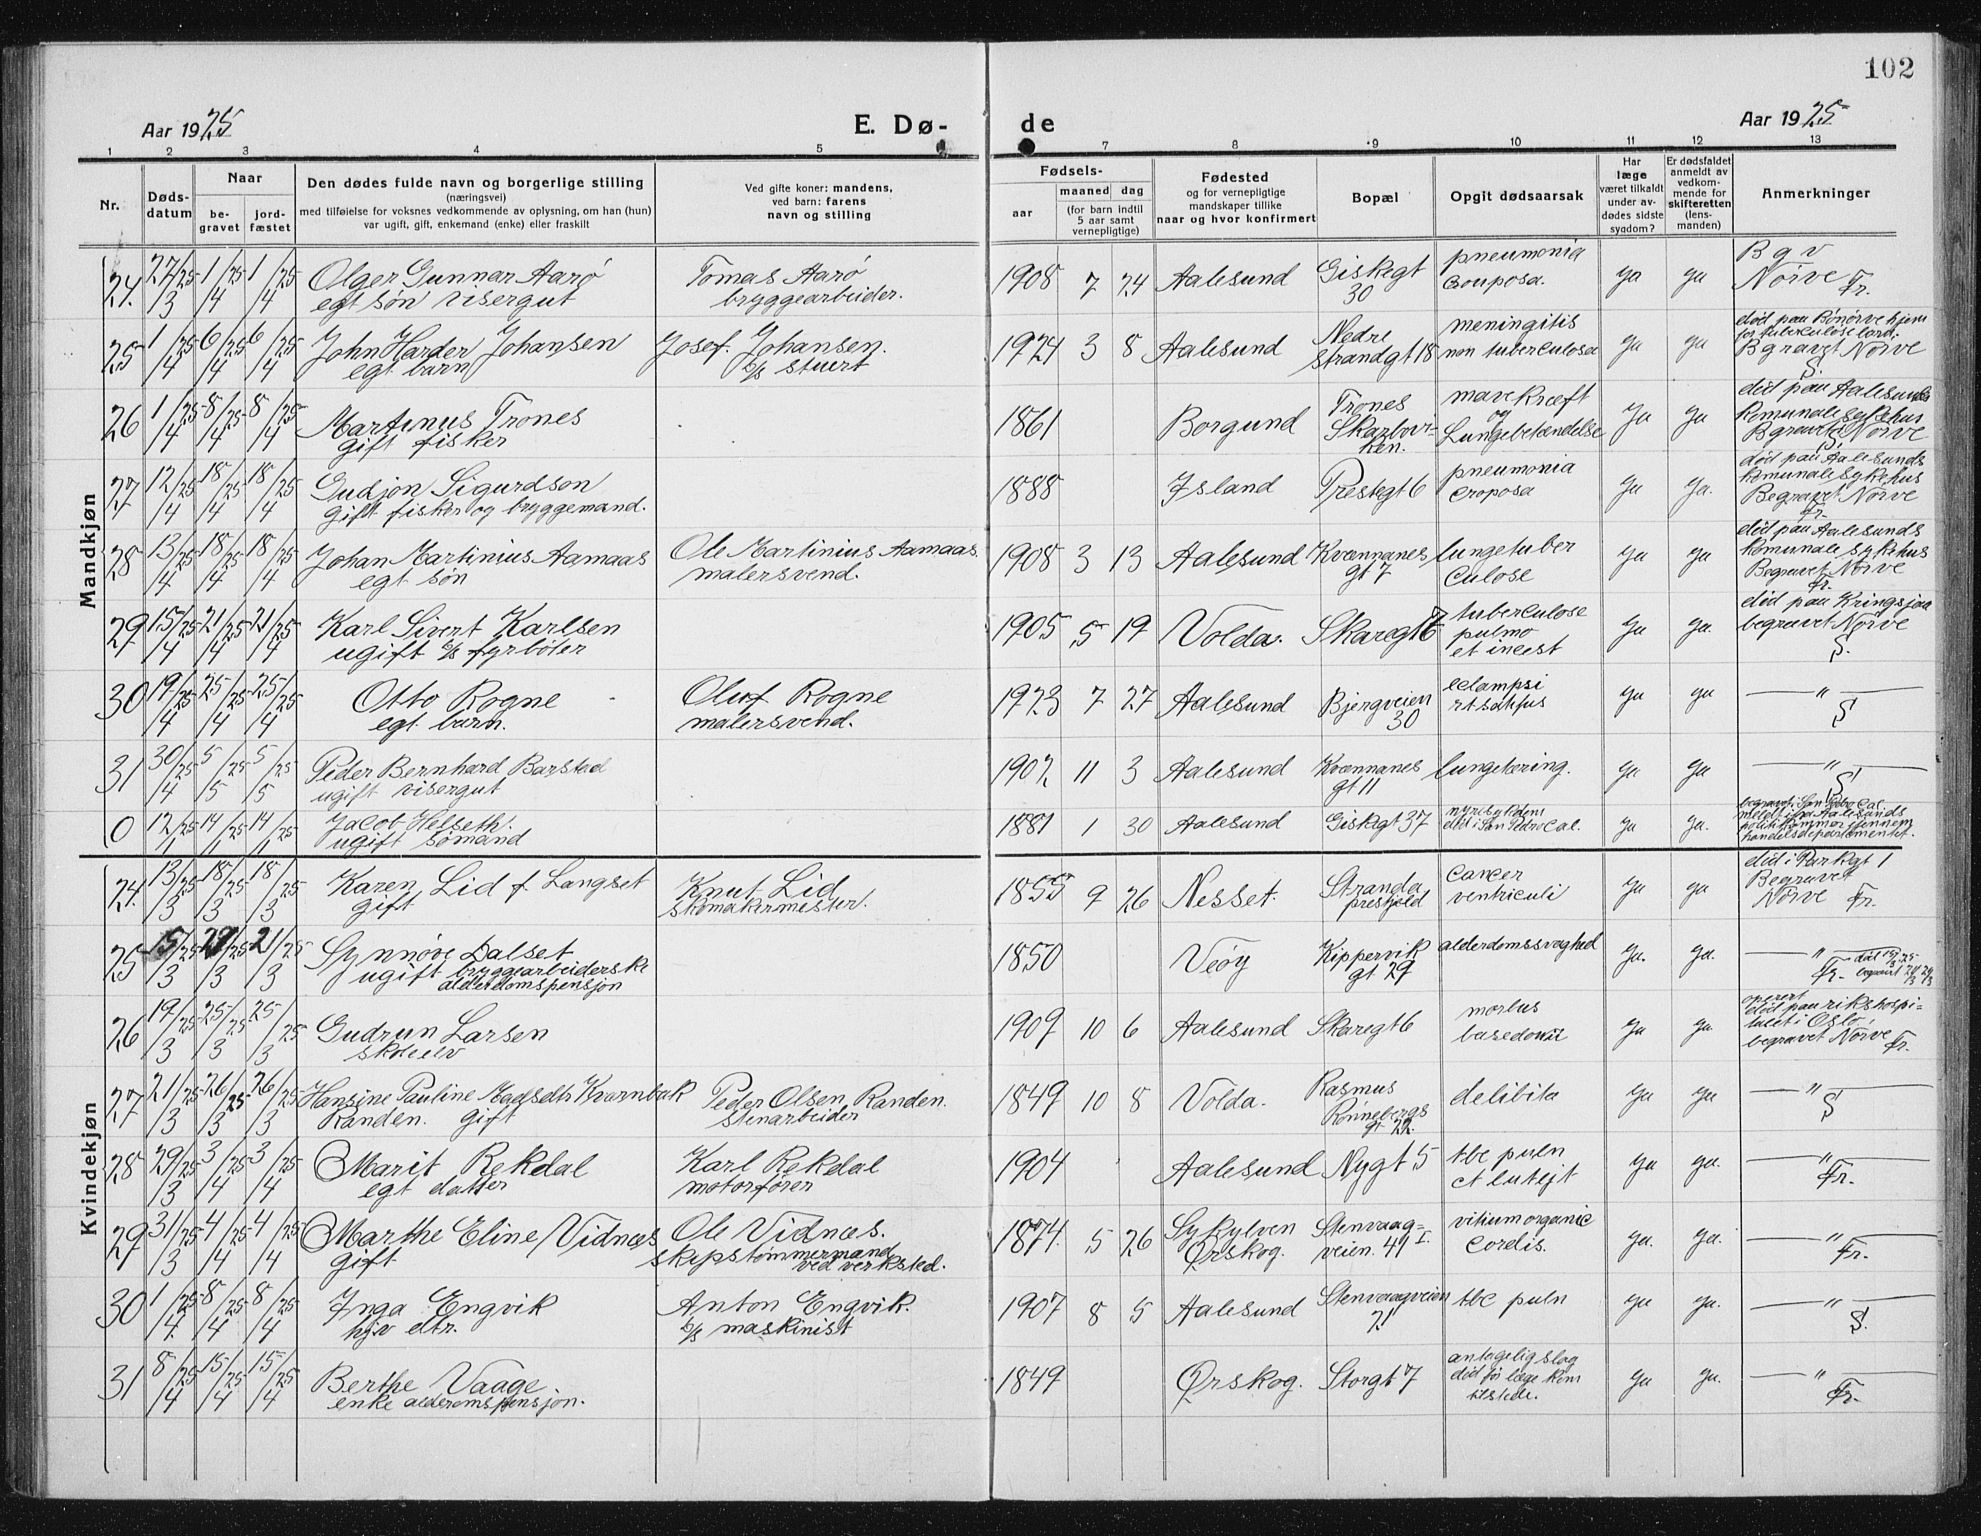 102
Aar 1925
E. Dø-
de
Aar 1925
1 2 3 4 5 7 8 9 10 11 12 13
Nr.
Døds-
datum
Naar
be-
gravet
jord-
fæstet
Den dødes fulde navn og borgerlige stilling
(næringsvei)
med tilføielse for voksnes vedkommende av oplysning, om han (hun)
var ugift, gift, enkemand (enke) eller fraskilt
Ved gifte koner: mandens,
ved barn: farens
navn og stilling
Fødsels-
aar
maaned dag
(for barn indtil
5 aar samt
vernepligtige)
Fødested
og for vernepligtige
mandskaper tillike
naar og hvor konfirmert
Bopæl
Opgit dødsaarsak
Har
læge
været tilkaldt
under av-
dødes sidste
sygdom?
Er dødsfaldet
anmeldt av
vedkom-
mende for
skifteretten
(lens-
manden)
Anmerkninger
Mandkjøn
24. 27/3 25 1/4 25 1/4 25 Olger Gunnar Aarø Tomas Aarø 1908 7 24 Aalesund Giskegt pneumonia ja ja Bgv
egt søn visergut bryggearbeider. 30 couposa. Nørve Fr.
25 1/4 25 6/4 25 6/4 25 John Harder Johansen Josef. Johansen. 1924 3 8 Aalesund Nedre meningitis ja ja død paa Bønørve hjem
for tuberculose barn.
egt barn b/s stuert strandgt 18 non tuberculosa Bgravet Nørve
S.
26 1/4 25 8/4 25 8/4 25 Martinus Trones 1861 Borgund Trones mavekræft ja ja død paa Aalesunds
gift fisker Skarbøvi- og komunale sykehus
ken. Lungebetændelse Bgravet Nørve
S.
27 12/4 25 18/4 25 18/4 25 Gudjon Sigurdson 1888 Island Prestegt 6 pneumonia ja ja. død paa Aalesunds
komunale sykehus
gift fisker og bryggemand. croposa Begravet Nørve
Fr.
28 13/4 25 18/4 25 18/4 25 Johan Martinius Aamaas Ole Martinius Aamaas. 1908 3 13 Aalesund Kvænnanes lungetuber ja ja død paa Aalesunds
komunale sykehus
egt søn malersvend. gt 7 culose Begravet Nørve
Fr.
29 15/4 25 21/4 25 21/4 25 Karl Sivert Karlsen 1905 5 19 Volda. Skaregt tuberculose ja ja. død paa Kringsjaa
ugift b/s fyrbøter pulmo begravet Nørve
et incest S.
30 19/4 25 25/4 25 25/4 25 Otto Rogne Oluf Rogne 1923 7 27 Aalesund Bjergveien eclampsi ja ja — " —
egt barn. malersvend. 30 S
31 30/4 25 5/5 25 5/5 25 Peder Bernhard Barstad 1902 11 3 Aalesund Kvænnanes lungetæring. ja ja — " —
ugift visergut gt 11 S
0 12/1 25 14/1 25 14/1 25 Jacob Helseth. 1881 1 30 Aalesund Giskegt 37 nyresykdom ja ja. begravet i San Pedro Cal.
ugift sømand død i San Pedro Cal. meldt fra Aalesunds
politikammer gjennem
handelsdepartementet.
Kvindekjøn
24. 13/3 25 18/3 25 18/3 25 Karen Lid f. Langset Knut Lid 1855 9 26 Nesset. Stranda cancer ja ja død i Parkgt 1
gift skomakermester. prestgjeld ventriculi Begravet
Nørve Fr.
25 15/3 25 21/3 25 21/3 25 Synnøve Dalset 1850 Veøy Kippervik alderdomssvaghed ja. ja. — " —
ugift bryggearbeiderske gt 29 Fr.
alderdomspensjon
26 19/3 25 25/3 25 25/3 25 Gudrun Larsen 1909 10 6 Aalesund Skaregt 6 morbus ja ja operert
død paa rikshospi-
skoleelev basedowii talet i Oslo.
begravet Nørve Fr.
27 21/3 25 26/3 25 26/3 25 Hansine Pauline Kvarnbak Peder Olsen Randen. 1849 10 8 Volda. Rasmus delibita ja ja — " —
Randen. gift stenarbeider Rønnebergs S
gt 22.
28 29/3 25 3/4 25 3/4 25 Marit Rekdal Karl Rekdal 1904 Aalesund Nygt 5 tbc puln ja ja. — " —
egt datter motorfører Fr.
29 31/3 25 4/4 25 4/4 25 Marthe Eline Vidnæs Ole Vidnæs. 1874 5 26 Sykylven Stenvaag- vitium organic ja. ja. — " —
gift skipstømmermand Ørskog. veien. 41 I. cordis. Fr.
ved verksted.
30 1/4 25 8/4 25 8/4 25 Inga Engvik Anton Engvik. 1907 8 5 Aalesund Stenvaagveien tbc puln ja ja. — " —
hjv dtr. b/s maskinist 21 S.
31 8/4 25 15/4 25 15/4 25 Berthe Vaage 1849 Ørskog. Storgt 7 antagelig slag ja ja. — " —
enke alderomspensjon. død før læge kom Fr.
tilstede.